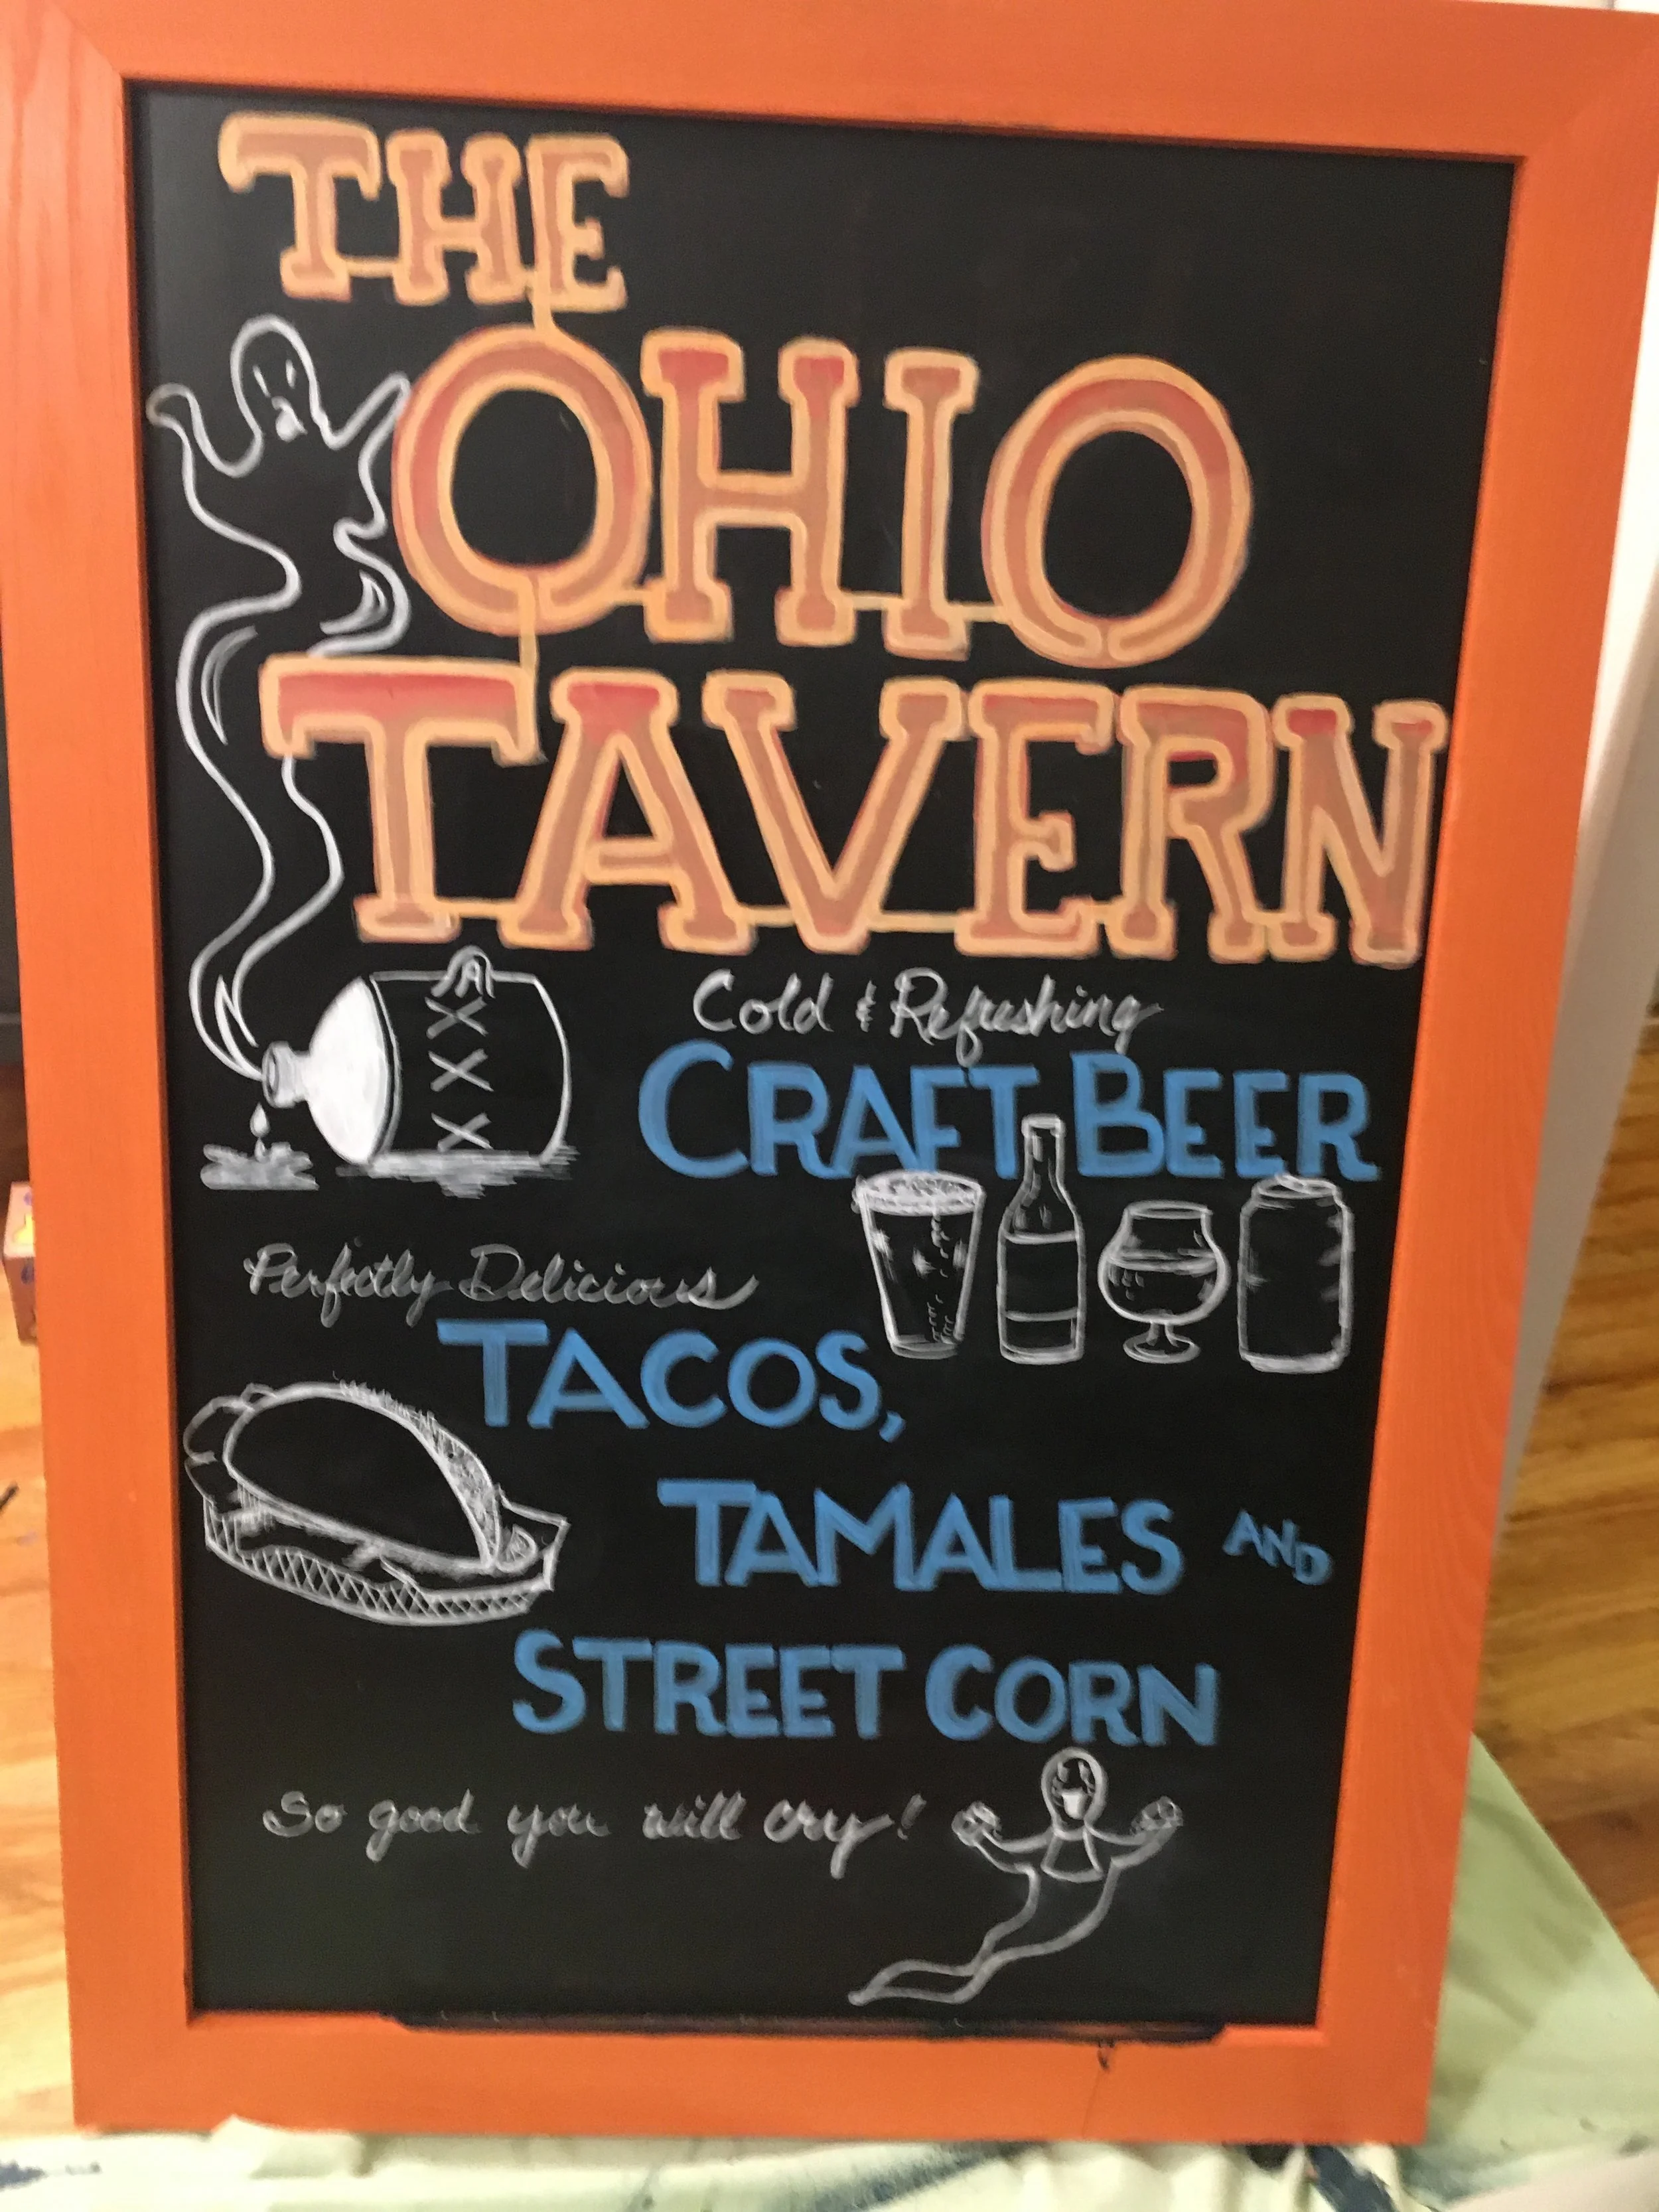 THE
OHIO
TAVERN
XXX
Cold & Refreshing
CRAFT BEER
Perfectly Delicious
TACOS,
TAMALES AND
STREET CORN
So good you will cry!